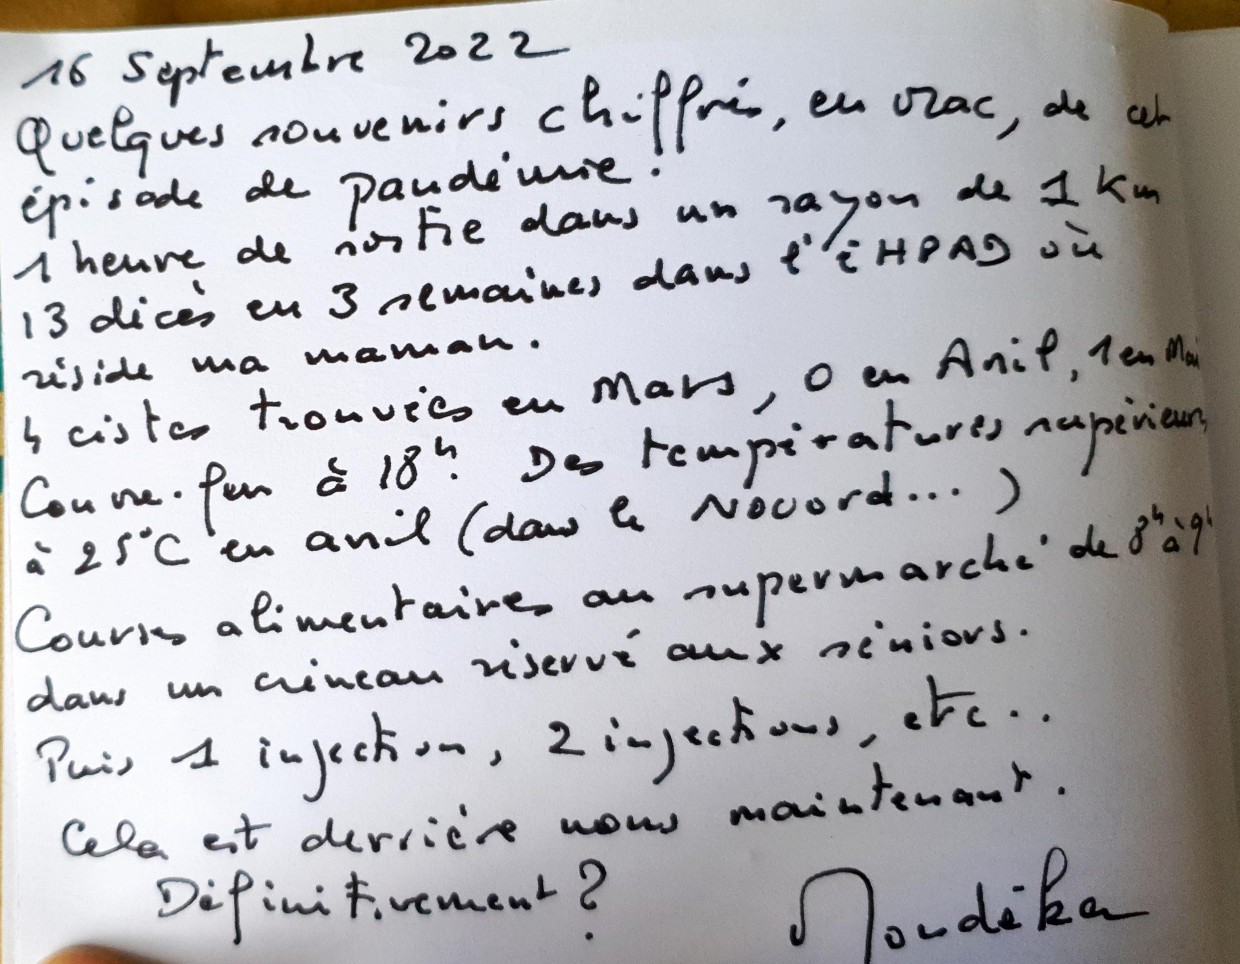 16 Septembre 2022
Quelques souvenirs chiffrés, en vrac, de cet
épisode de pandémie.
1 heure de sortie dans un rayon de 1 Km
13 décès en 3 semaines dans l'éHPAD où
réside ma maman.
4 cistes trouvées en Mars, 0 en Avril, 1 en Mai
Couvre-feu à 18h. Des températures supérieures
à 25°C en avril (dans le Nooord...)
Courses alimentaires au supermarché de 8h à 9h
dans un créneau réservé aux séniors.
Puis 1 injection, 2 injections, etc..
Cela est derrière nous maintenant.
Définitivement ?